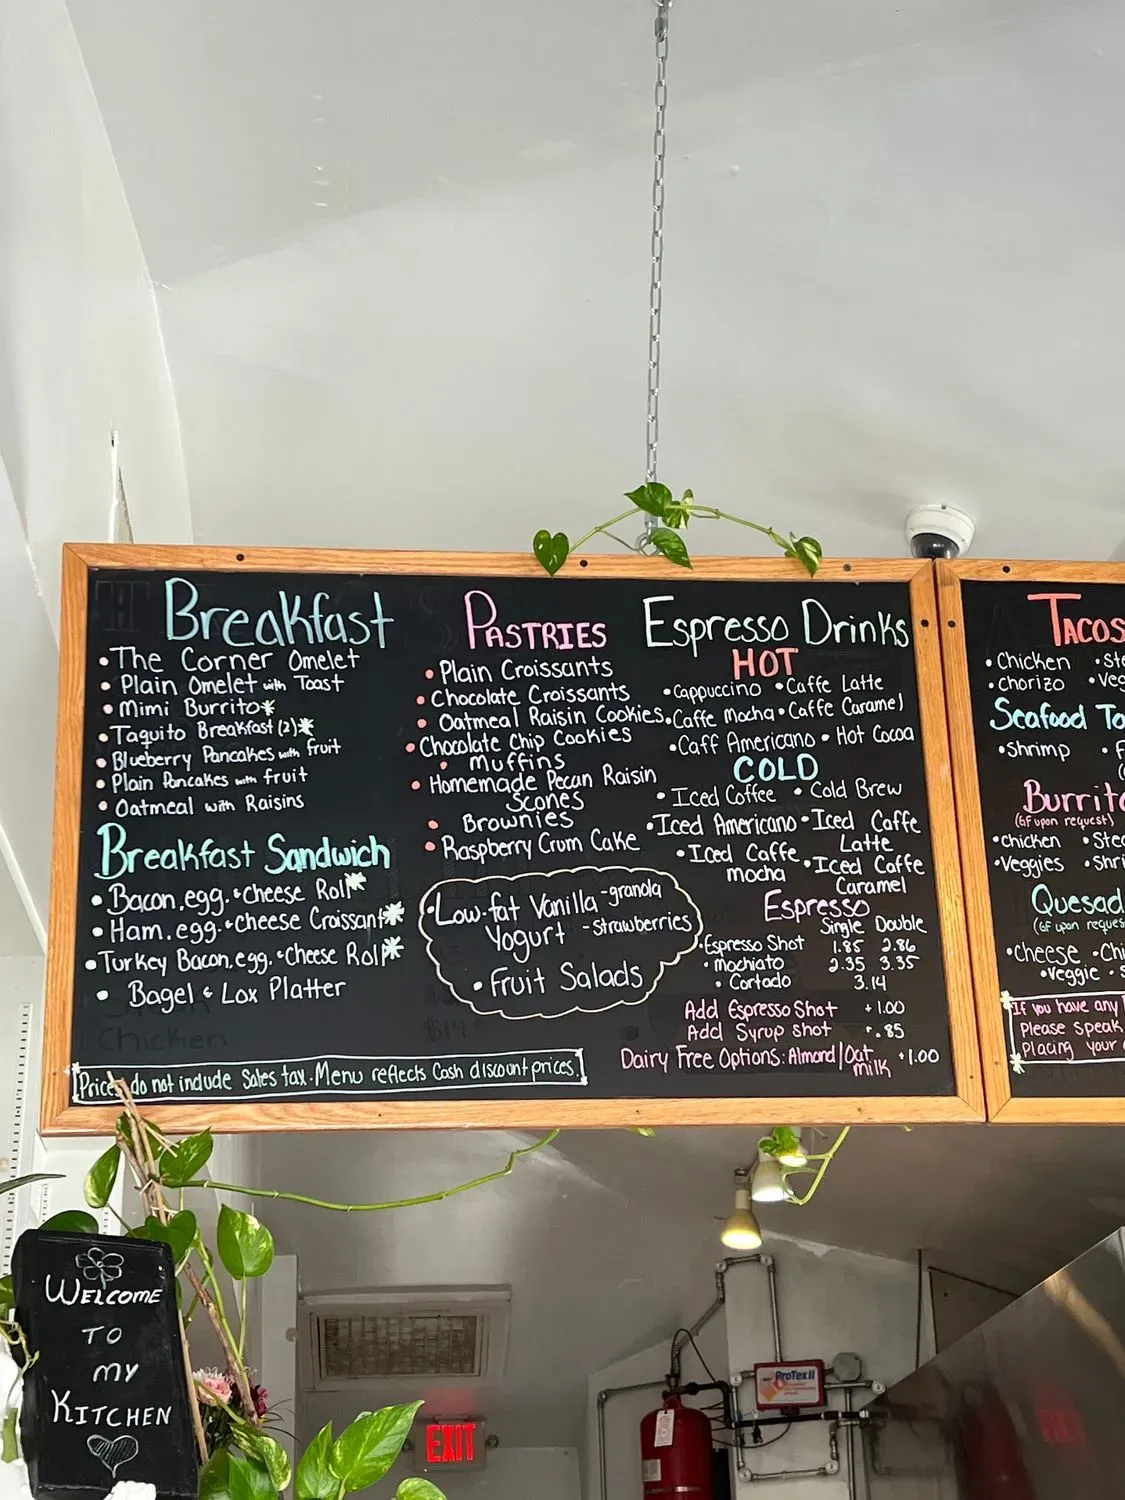 Breakfast
• The Corner Omelet
• Plain Omelet with Toast
• Mimi Burrito*
• Taquito Breakfast (2)*
• Blueberry Pancakes with fruit
• Plain Pancakes with fruit
• Oatmeal with Raisins
Breakfast Sandwich
• Bacon, egg, & cheese Roll*
• Ham, egg, & cheese Croissant*
• Turkey Bacon, egg, & cheese Roll*
• Bagel & Lox Platter
Chicken
$14
Prices do not include Sales tax. Menu reflects Cash discount prices.
PASTRIES
• Plain Croissants
• Chocolate Croissants
• Oatmeal Raisin Cookies
• Chocolate Chip Cookies
• Muffins
• Homemade Pecan Raisin
Scones
• Brownies
• Raspberry Crum Cake
• Low-fat Vanilla -granola
Yogurt -strawberries
• Fruit Salads
Espresso Drinks
HOT
• Cappuccino • Caffe Latte
• Caffe Mocha • Caffe Caramel
• Caff Americano • Hot Cocoa
COLD
• Iced Coffee • Cold Brew
• Iced Americano • Iced Caffe
Latte
• Iced Caffe
mocha
• Iced Caffe
Caramel
Espresso
Single Double
• Espresso Shot 1.85 2.86
• Mochiato 2.35 3.35
• Cortado 3.14
Add Espresso Shot +1.00
Add Syrup shot +.85
Dairy Free Options: Almond/Oat +1.00
milk
TACOS
• Chicken
• Chorizo
Seafood
• Shrimp
(GF upon request)
• chicken
• Veggies
• Cheese
• Veggie
If you have any
Please speak
Placing your
WELCOME
TO
MY
KITCHEN
EXIT
ProTex II